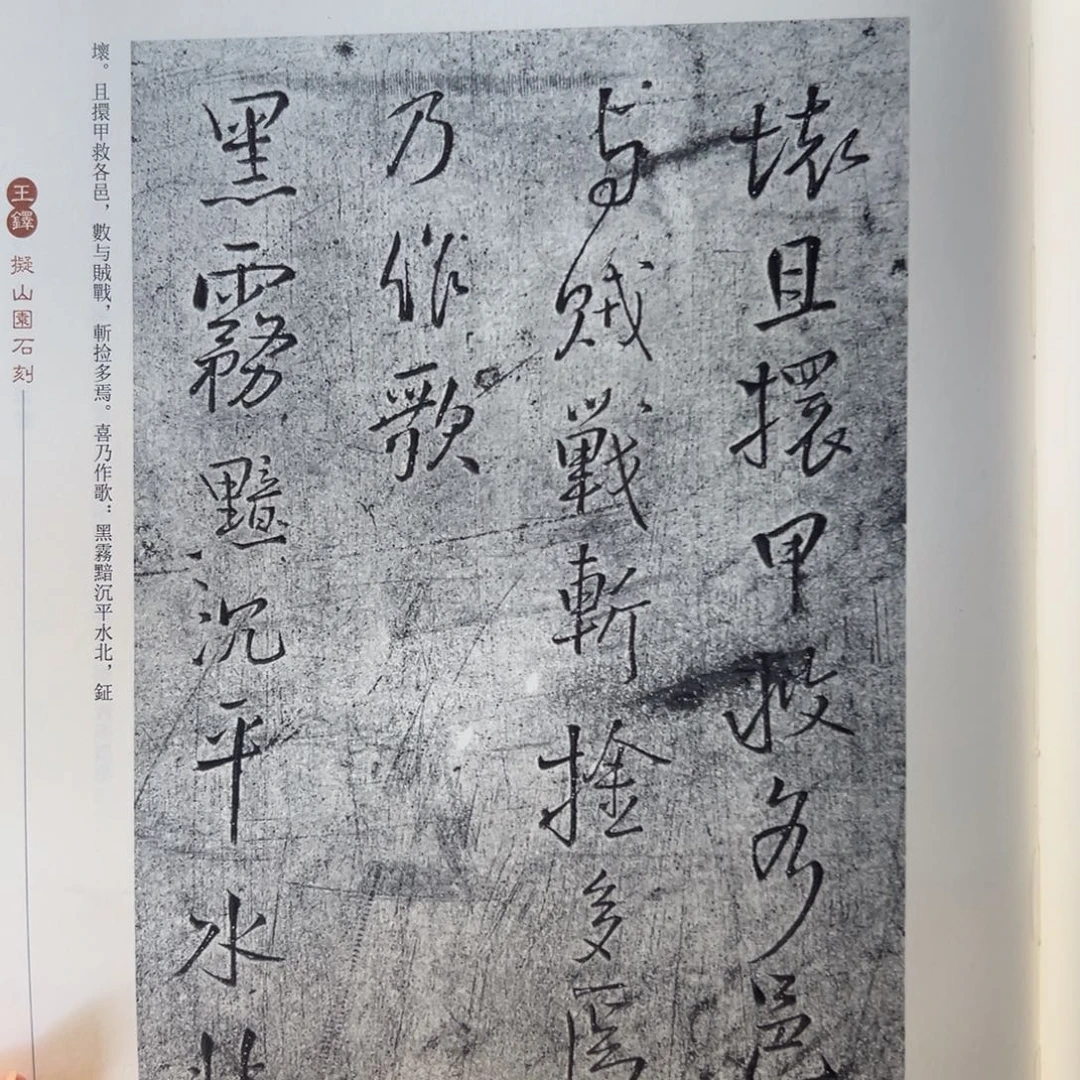 壞且擐甲救各邑
与賊戰斬捦多焉
乃作歌
黑霧黯沉平水北
壞。且擐甲救各邑，數与賊戰，斬捡多焉。喜乃作歌：黑霧黯沉平水北，鉦
王鐸 擬山園石刻